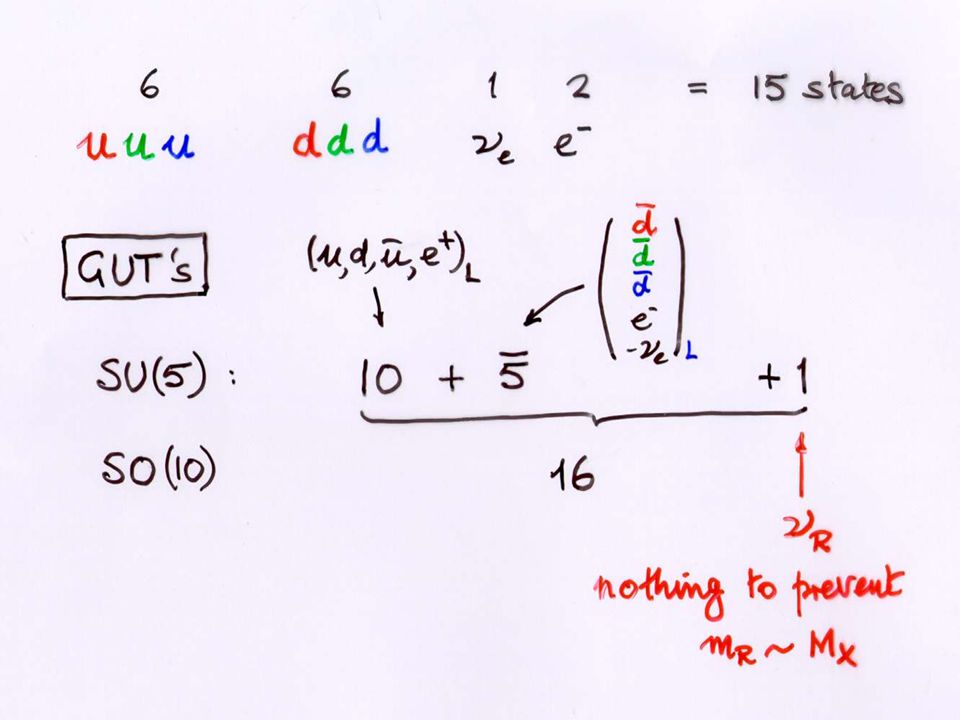 6 6 1 2 = 15 states
u u u d d d νe e⁻
GUT's (u, d, ū, e⁺)L
d̄
d̄
d̄
e⁻
-νe L
SU(5) : 10 + 5̿ + 1
SO(10) 16
νR
nothing to prevent
mR ~ MX